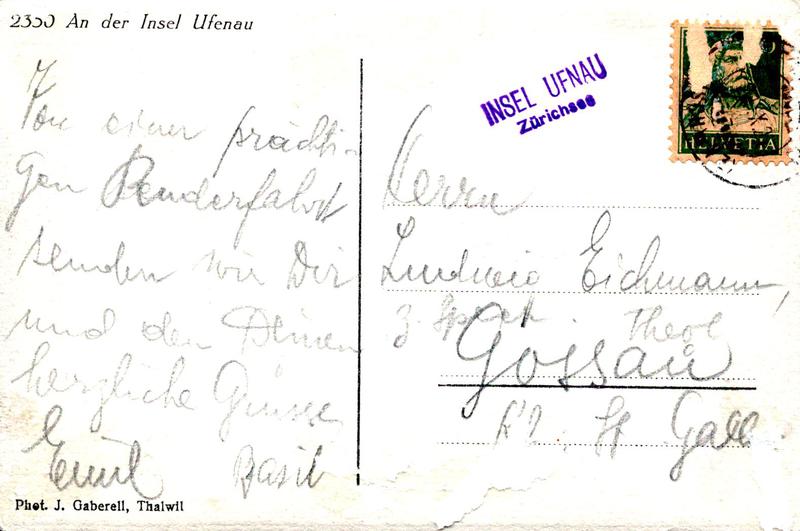 2350 An der Insel Ufenau
Von einer prächti-
gen Ruderfahrt
senden wir Dir
und den Deinen
herzliche Grüsse
Emil Basil
Phot. J. Gaberell, Thalwil
INSEL UFNAU
Zürichsee
HELVETIA
Herrn
Ludwig Eichmann,
z. Theol
Gossau
Kt. St Gall